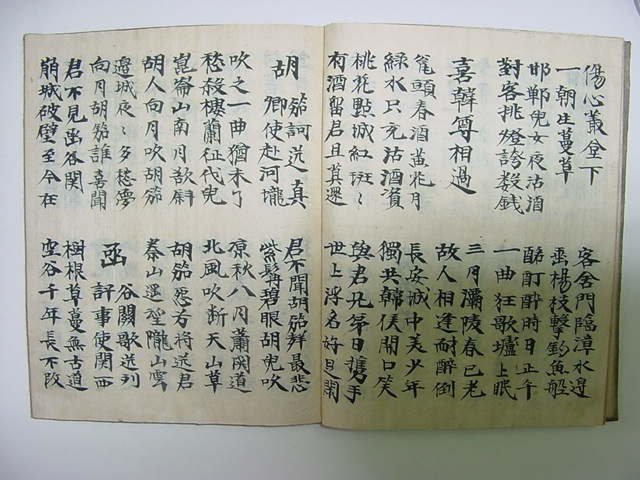 傷心叢臺下
一朝生蔓草
客舍門臨漳水邊
垂楊枝擊釣魚船
邯鄲兒女夜沽酒
對客挑燈誇數錢
酩酊醉時日正午
一曲狂歌壚上眠
喜韓尊相過
三月灞陵春已老
故人相逢耐醉倒
甕頭春酒黃花月
綠水只充沽酒資
長安城中美少年
獨共韓侯開口笑
桃花點城紅斑〻
有酒留君且莫還
與君兄弟日攜手
世上浮名好且閑
胡笳詞送真
卿使赴河隴
君不聞胡笳聲最悲
紫髯碧眼胡兒吹
吹之一曲猶未了
愁殺樓蘭征戍兒
涼秋八月蕭関道
北風吹斷天山草
崑崙山南月欲斜
胡人向月吹胡笳
胡笳怨兮將送君
秦山遥望隴山雲
邊城夜〻多愁夢
向月胡笳誰喜聞
函谷関歌送列
評事使関西
君不見函谷関
崩城破壁至今在
樹根草蔓無古道
空谷千年長不改